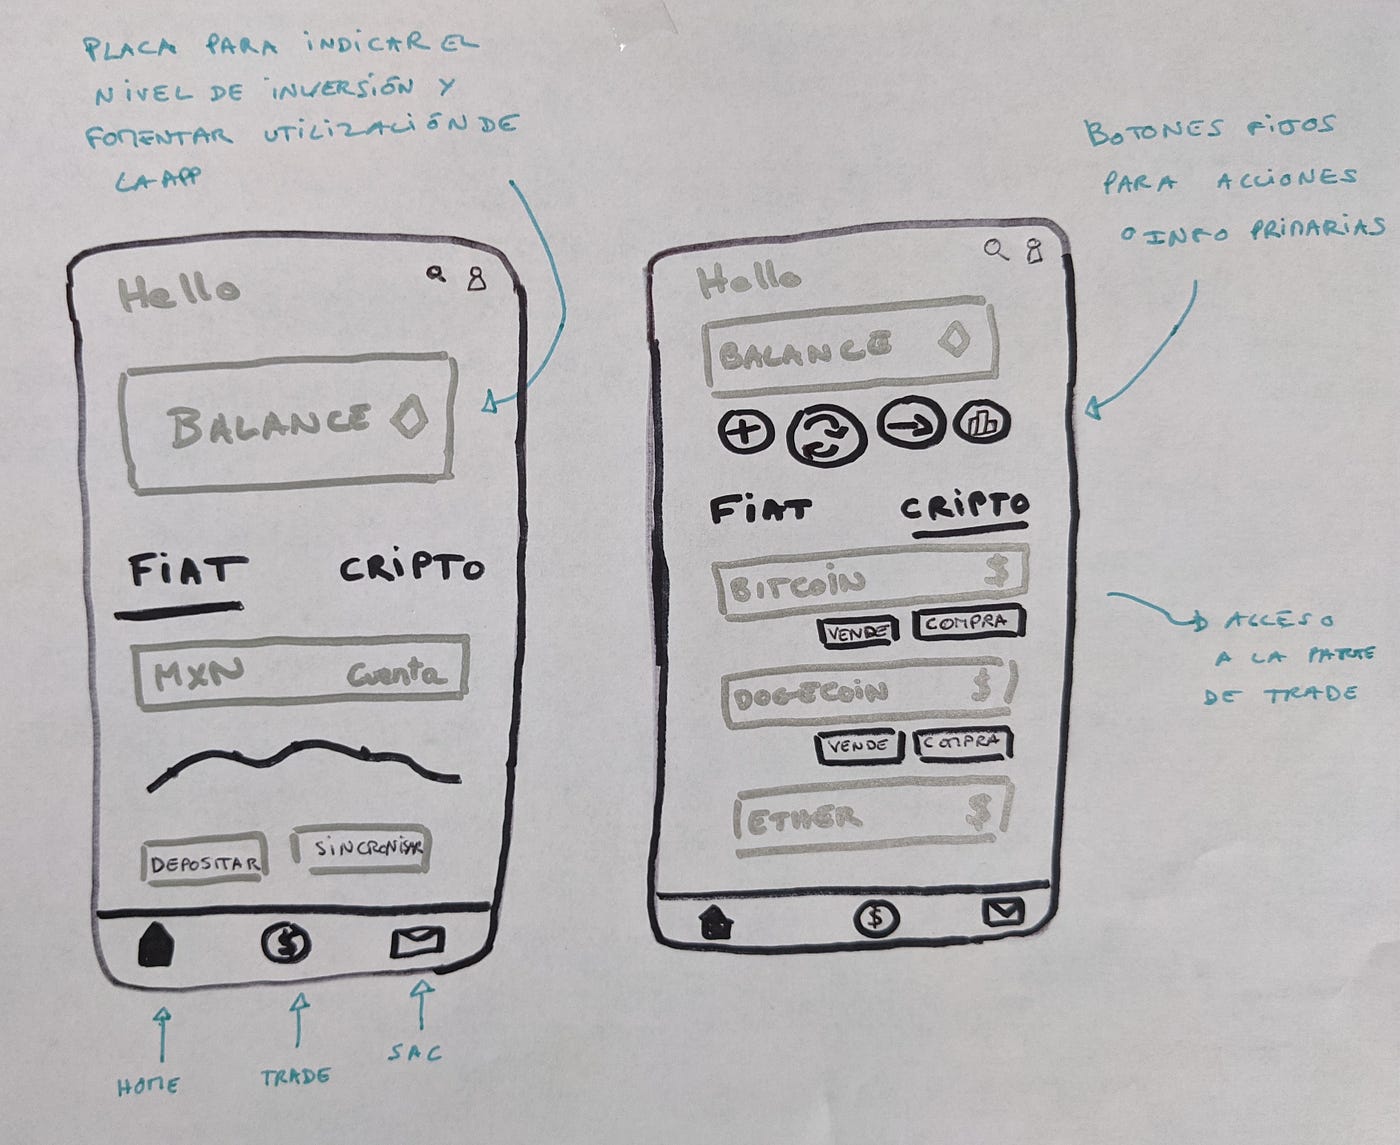 PLACA PARA INDICAR EL
NIVEL DE INVERSIÓN Y
FOMENTAR UTILIZACIÓN DE
LA APP
BOTONES FIJOS
PARA ACCIONES
O INFO PRIMARIAS
Hello
BALANCE
FIAT CRIPTO
MXN Cuenta
DEPOSITAR SINCRONISAR
$
HOME
TRADE
SAC
Hello
BALANCE
+
FIAT CRIPTO
BITCOIN $
VENDE COMPRA
DOGECOIN $
VENDE COMPRA
ETHER $
$
ACCESO
A LA PARTE
DE TRADE